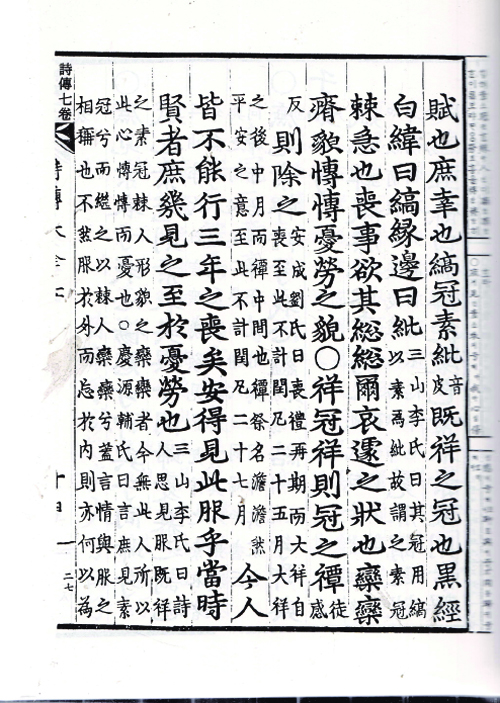 賦也庶幸也縞冠素紕音皮既祥之冠也黑經
白緯曰縞緣邊曰紕三山李氏曰其冠用縞
以素爲紕故謂之素冠
棘急也喪事欲其総総爾哀遽之狀也欒欒
瘠貌慱慱憂勞之貌○祥冠祥則冠之禫徒感
反則除之安成劉氏曰喪禮再期而大祥自
喪至此不計閏凡二十五月大祥
之後中月而禫中間也禫祭名澹澹然
平安之意至此不計閏凡二十七月今人
皆不能行三年之喪矣安得見此服乎當時
賢者庶幾見之至於憂勞也三山李氏曰詩
人思見服既祥
之素冠棘人形貌之欒欒者今無此人所以
此心慱慱而憂也○慶源輔氏曰言庶見素
冠兮而継之以棘人欒欒兮蓋言情與服之
相稱也不然服於外而忘於內則亦何以爲
詩傳七卷
二七